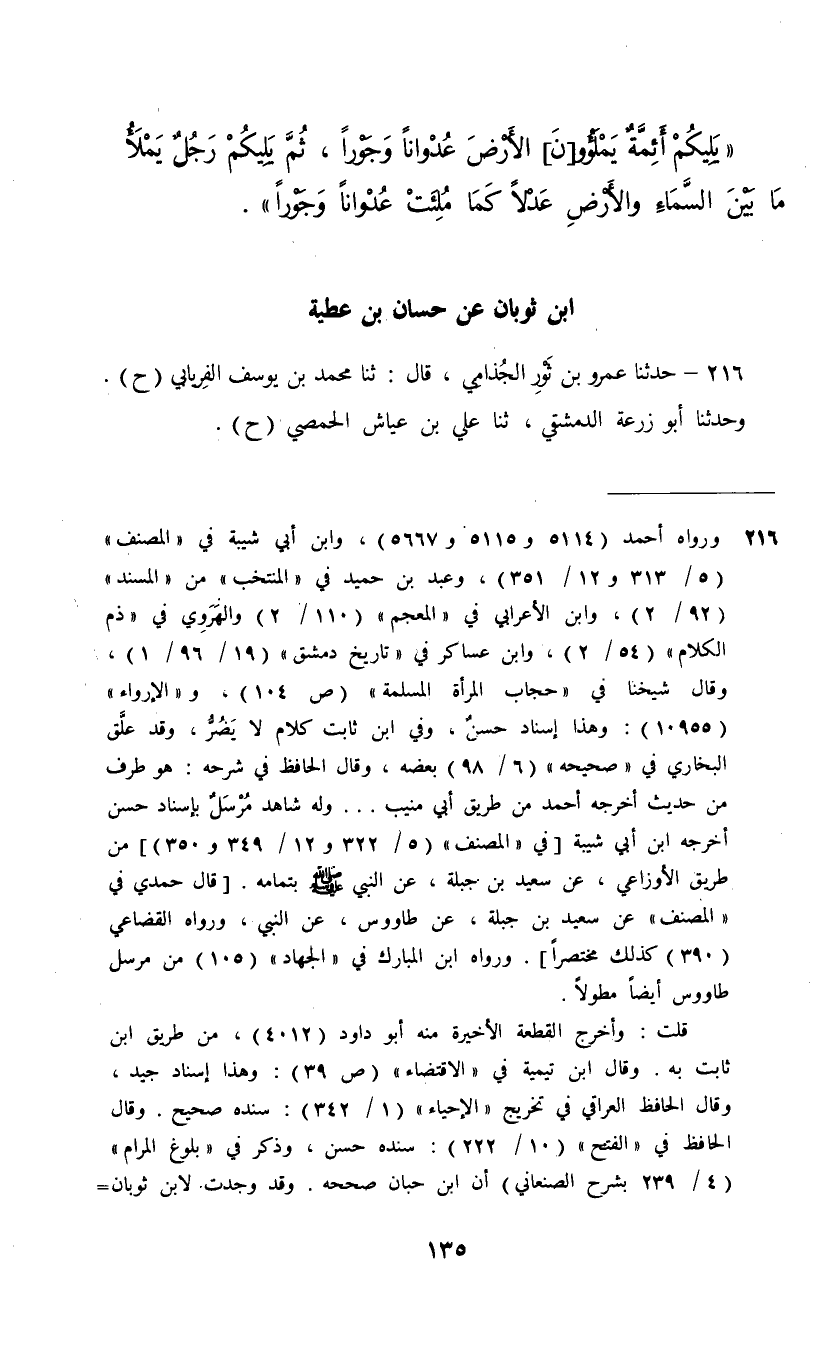 « يَلِيكُمْ أَئِمَّةٌ يَمْلَؤُو[نَ] الأَرْضَ عُدْوَاناً وَجَوْراً ، ثُمَّ يَلِيكُمْ رَجُلٌ يَمْلَأُ
مَا بَيْنَ السَّمَاءِ والأَرْضِ عَدْلاً كَمَا مُلِئَتْ عُدْوَاناً وَجَوْراً » .
ابن ثوبان عن حسان بن عطية
٢١٦ – حدثنا عمرو بن ثَوْرِ الجُذامي ، قال : ثنا محمد بن يوسف الفِريابي (ح) .
وحدثنا أبو زرعة الدمشقي ، ثنا علي بن عياش الحمصي (ح) .
٢١٦ ورواه أحمد (٥١١٤ و ٥١١٥ و ٥٦٦٧) ، وابن أبي شيبة في « المصنف »
(٥ / ٣١٣ و ١٢ / ٣٥١) ، وعبد بن حميد في « المنتخب » من « المسند »
(٩٢ / ٢) ، وابن الأعرابي في « المعجم » (١١٠ / ٢) والهَرَوِي في « ذم
الكلام » (٥٤ / ٢) ، وابن عساكر في « تاريخ دمشق » (١٩ / ٩٦ / ١) ،
وقال شيخنا في « حجاب المرأة المسلمة » (ص ١٠٤) ، و « الإرواء »
(١٠٩٥٥) : وهذا إسناد حسنٌ ، وفي ابن ثابت كلام لا يَضُرُّ ، وقد علَّق
البخاري في « صحيحه » (٦ / ٩٨) بعضه ، وقال الحافظ في شرحه : هو طرف
من حديث أخرجه أحمد من طريق أبي منيب ... وله شاهد مُرْسَلٌ بإسناد حسن
أخرجه ابن أبي شيبة [ في « المصنف » (٥ / ٣٢٢ و ١٢ / ٣٤٩ و ٣٥٠)] من
طريق الأوزاعي ، عن سعيد بن جبلة ، عن النبي ﷺ بتمامه . [ قال حمدي في
« المصنف » عن سعيد بن جبلة ، عن طاووس ، عن النبي ، ورواه القضاعي
(٣٩٠) كذلك مختصراً] . ورواه ابن المبارك في « الجهاد » (١٠٥) من مرسل
طاووس أيضاً مطولاً .
قلت : وأخرج القطعة الأخيرة منه أبو داود (٤٠١٢) ، من طريق ابن
ثابت به . وقال ابن تيمية في « الاقتضاء » (ص ٣٩) : وهذا إسناد جيد ،
وقال الحافظ العراقي في تخريج « الإحياء » (١ / ٣٤٢) : سنده صحيح . وقال
الحافظ في « الفتح » (١٠ / ٢٢٢) : سنده حسن ، وذكر في « بلوغ المرام »
(٤ / ٢٣٩ بشرح الصنعاني) أن ابن حبان صححه . وقد وجدت لابن ثوبان=
١٣٥